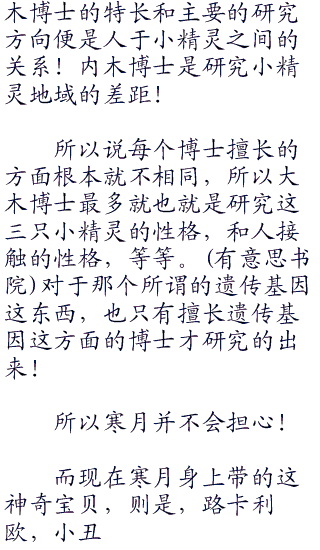 木博士的特长和主要的研究
方向便是人于小精灵之间的
关系！内木博士是研究小精
灵地域的差距！
所以说每个博士擅长的
方面根本就不相同，所以大
木博士最多就也就是研究这
三只小精灵的性格，和人接
触的性格，等等。(有意思书
院)对于那个所谓的遗传基因
这东西，也只有擅长遗传基
因这方面的博士才研究的出
来！
所以寒月并不会担心！
而现在寒月身上带的这
神奇宝贝，则是，路卡利
欧，小丑